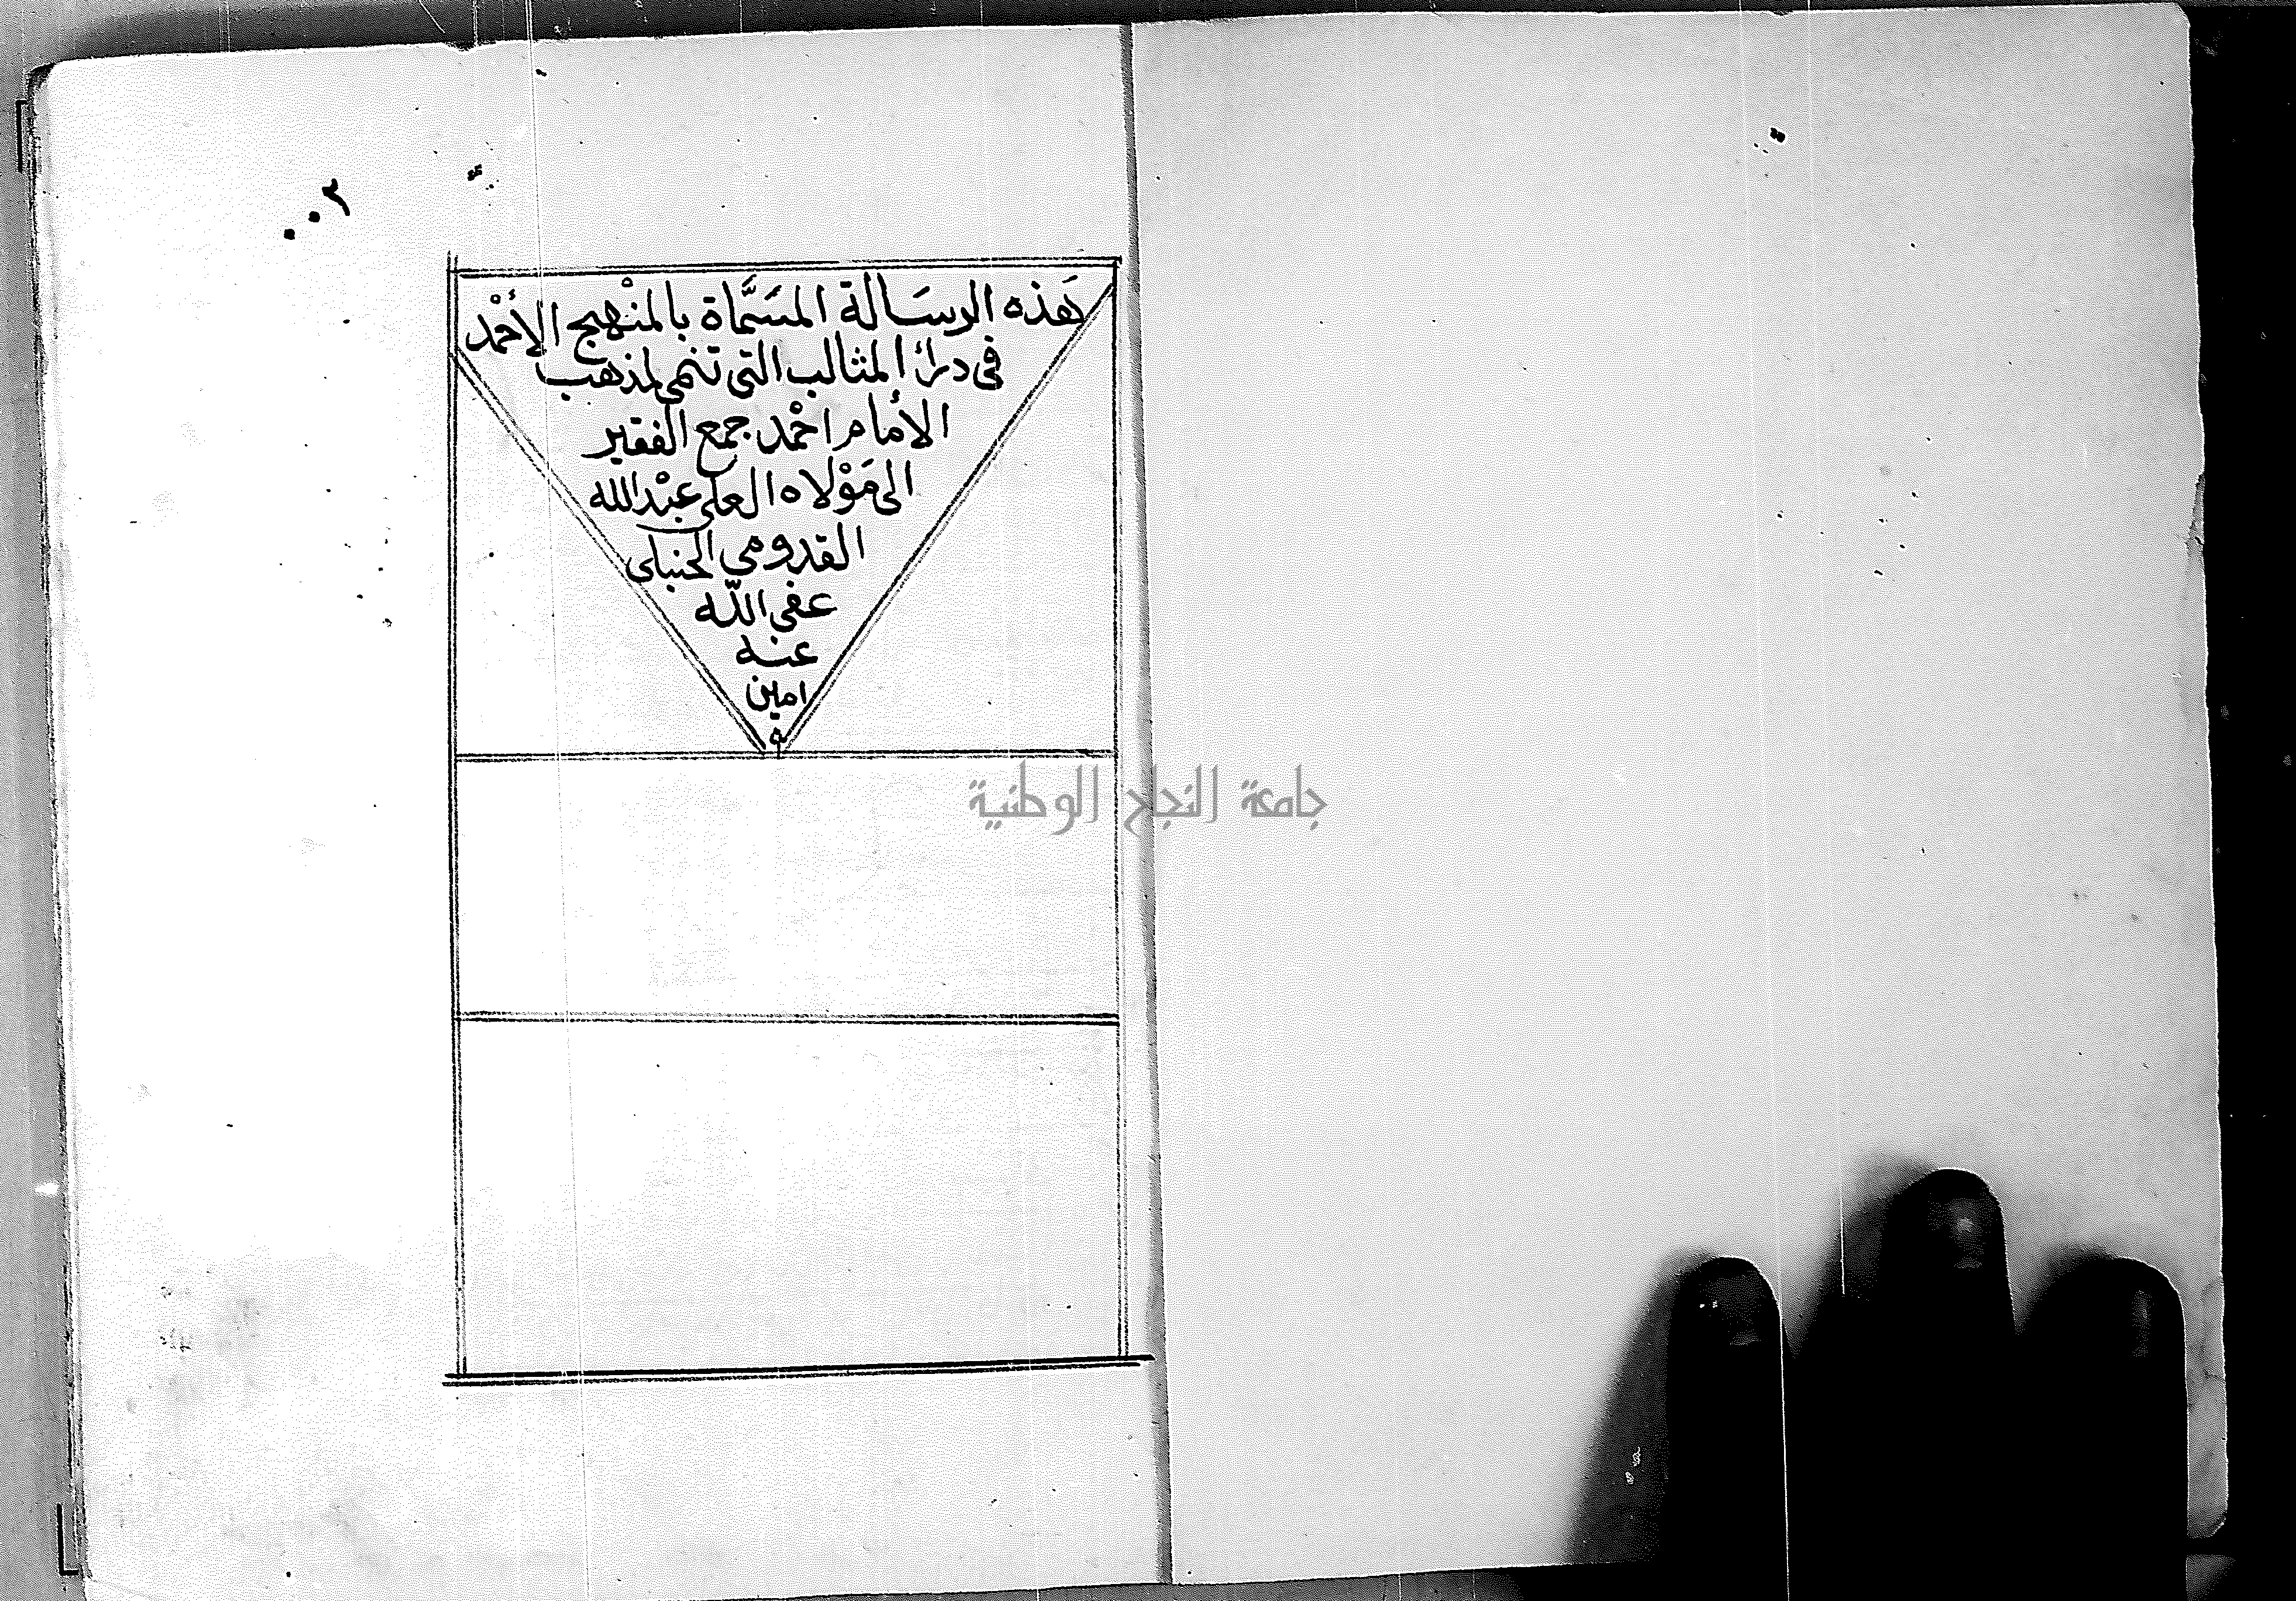 ٠٠٢
هَذه الرسَالة المسَمَّاة بالمنْهج الأحْمْد
فى درأ المثالب التى تنمى لمذهب
الأمام احْمد جمع الفقير
الى مَوْلاه العلى عبْدالله
القدومى الحنبلى
عفى اللّه
عنه
امين
جامعة النجاح الوطنية